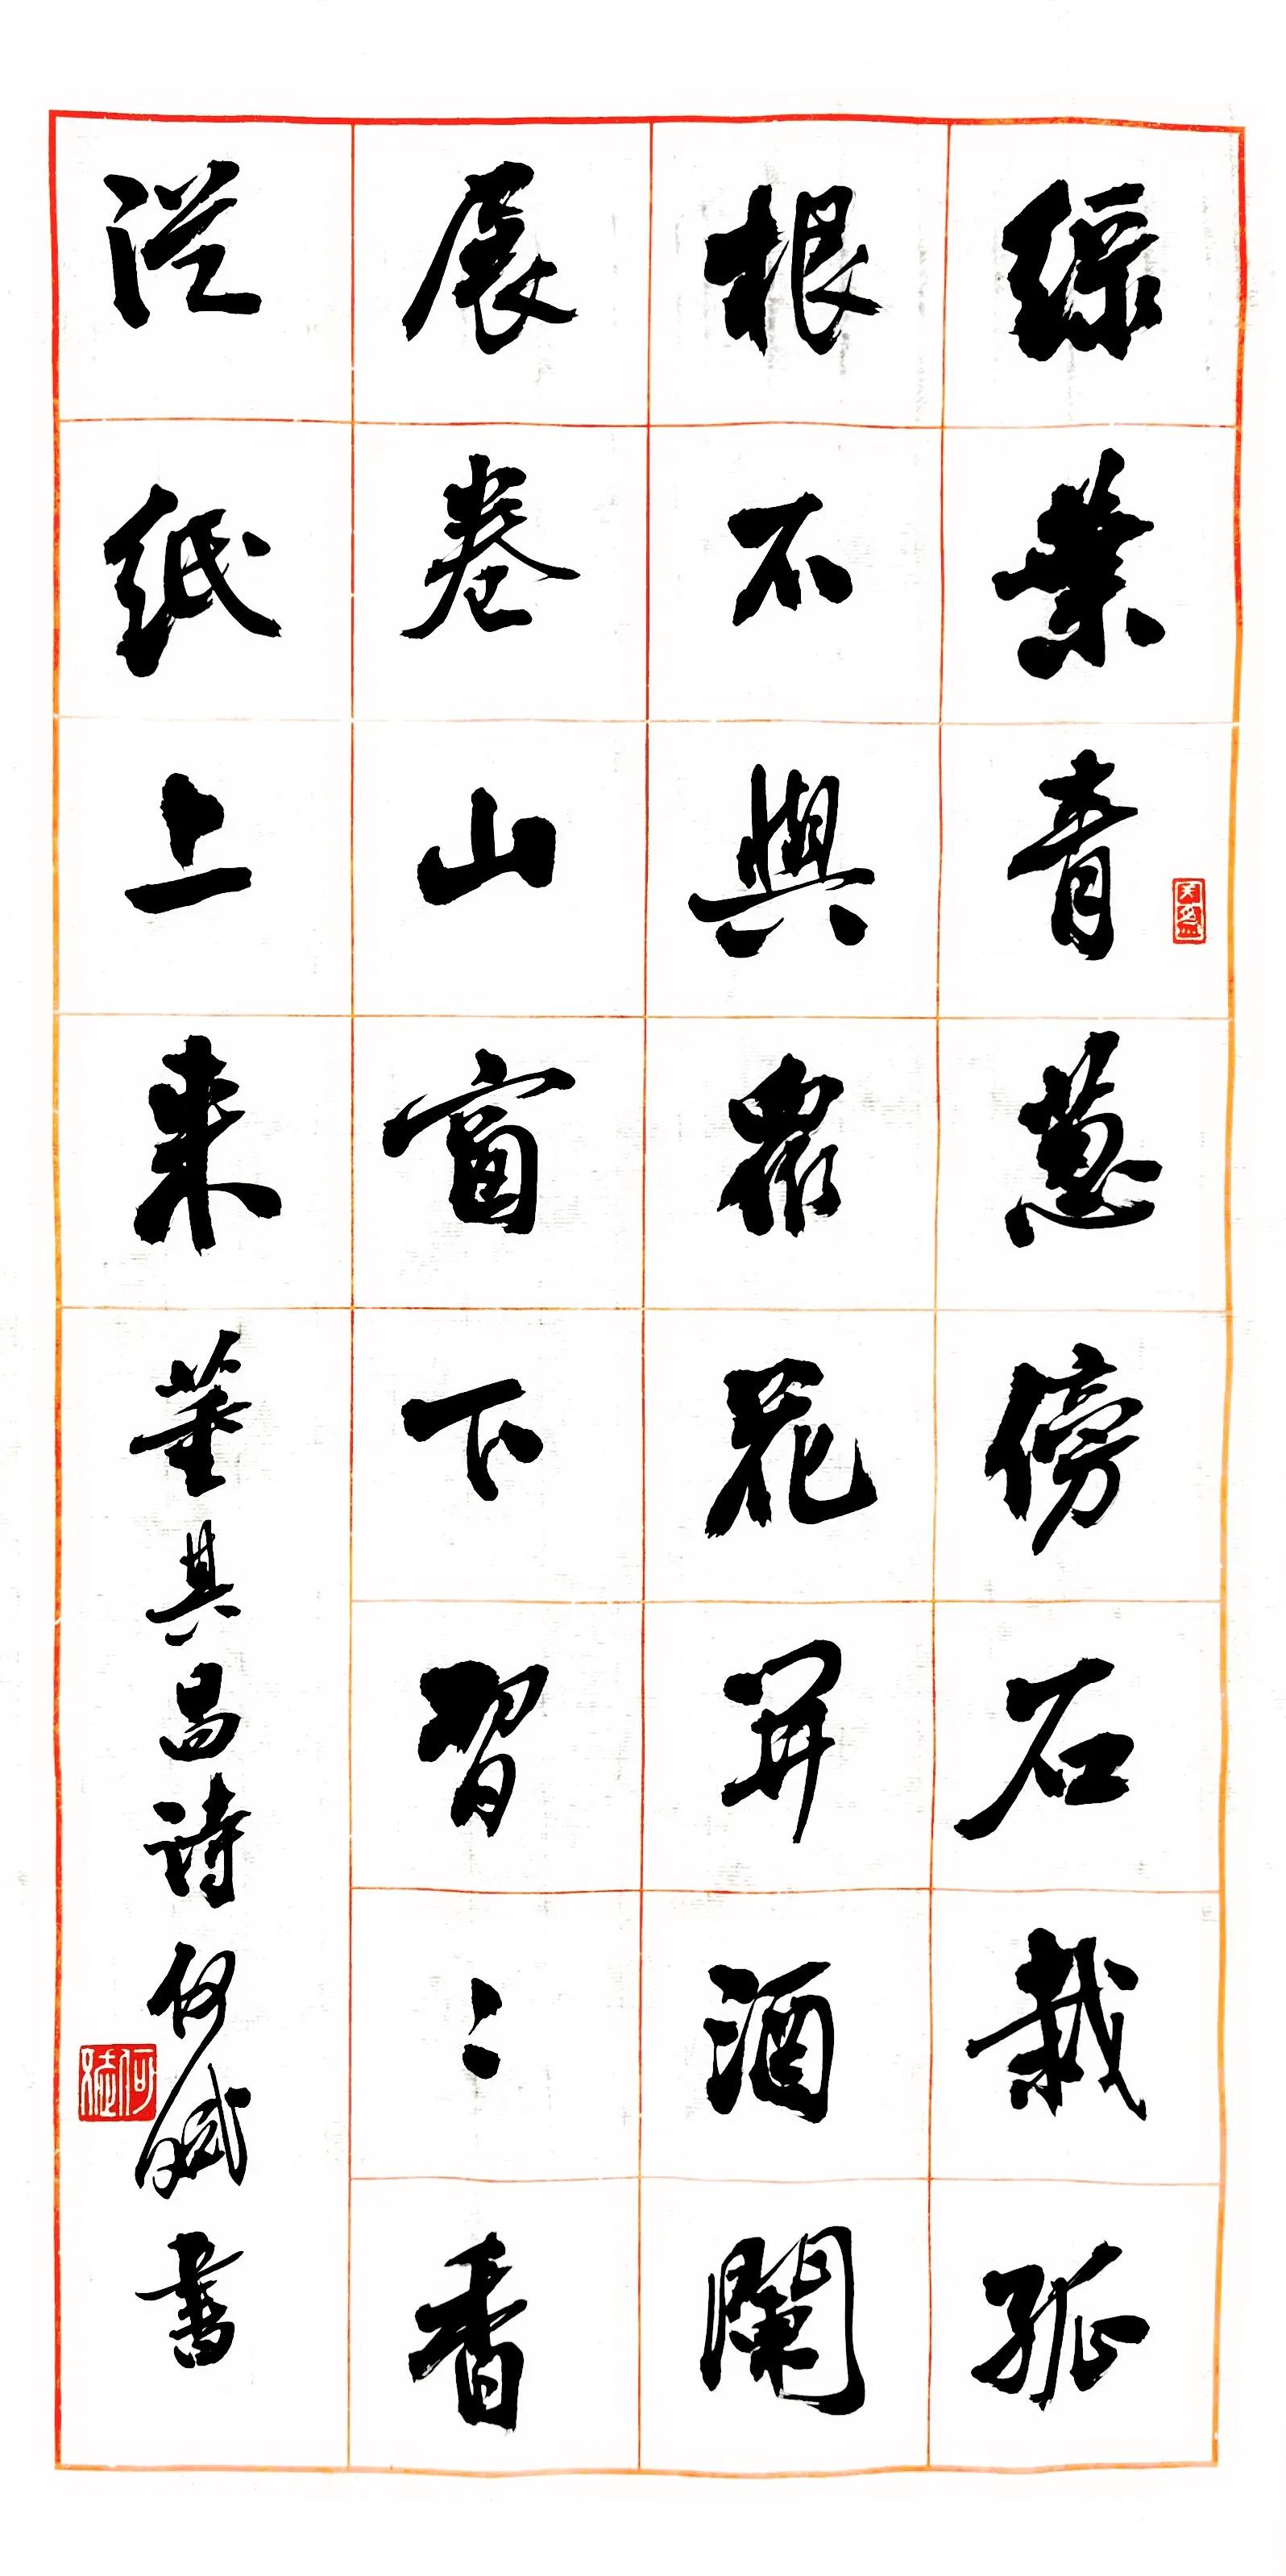 綠葉青葱傍石栽孤
根不與衆花開酒闌
展卷山窗下習〻香
從紙上來董其昌詩何斌書